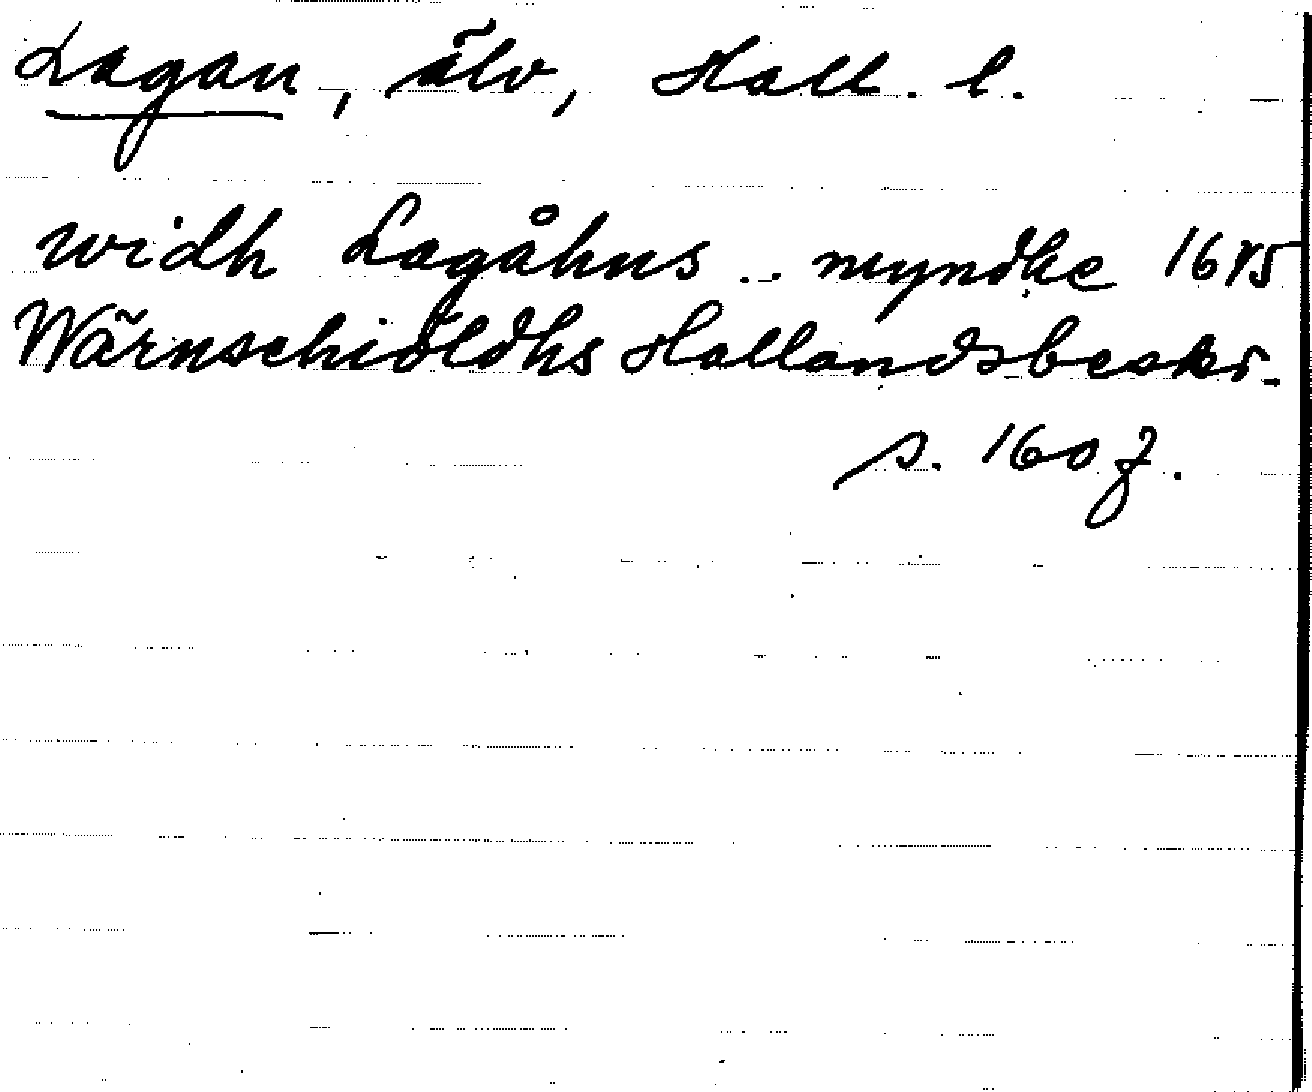 Lagan, älv, Hall. l.
widh Lagåhns .. myndhe 1645
Wärnschiöldhs Hallandsbeskr.
s. 160 f.